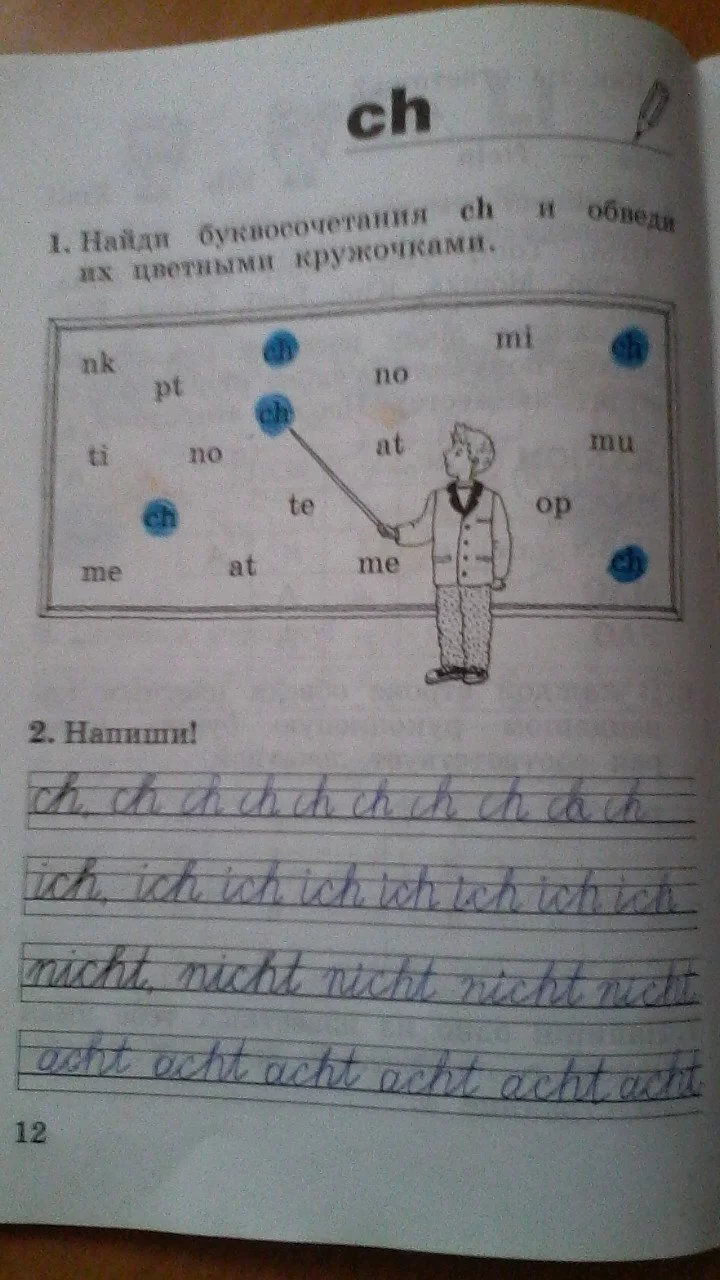 ch
1. Найди буквосочетания ch и обведи
их цветными кружочками.
nk pt ch no mi ch
ch
ti no at mu
ch te op
me at me ch
2. Напиши!
ch, ch ch ch ch ch ch ch ch ch
ich, ich ich ich ich ich ich ich
nicht, nicht nicht nicht nicht
acht acht acht acht acht acht
12